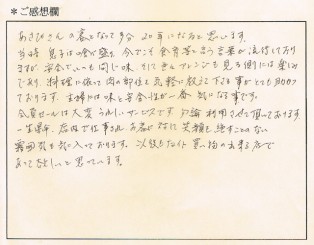 *ご感想欄
あさひさんの客となって多分20年になると思います。
当時息子は食べ盛り、今でこそ食育等と言う言葉が流行しており
ますが、安全でいつも同じ味、そしてアレンジも見る側には楽しみ
であり、料理に依って肉の部位も気軽に教えて下さる事がとても助かっ
ております。主婦には味と安全性が一番気になる事です。
会員セールは大変うれしいサービスです。勿論利用させて頂いております。
一生懸命、店内で仕事され、お客に対して笑顔を絶すことのない
雰囲気も気に入っております。以後もナイト買い物の出来る店で
あって欲しいと思っています。